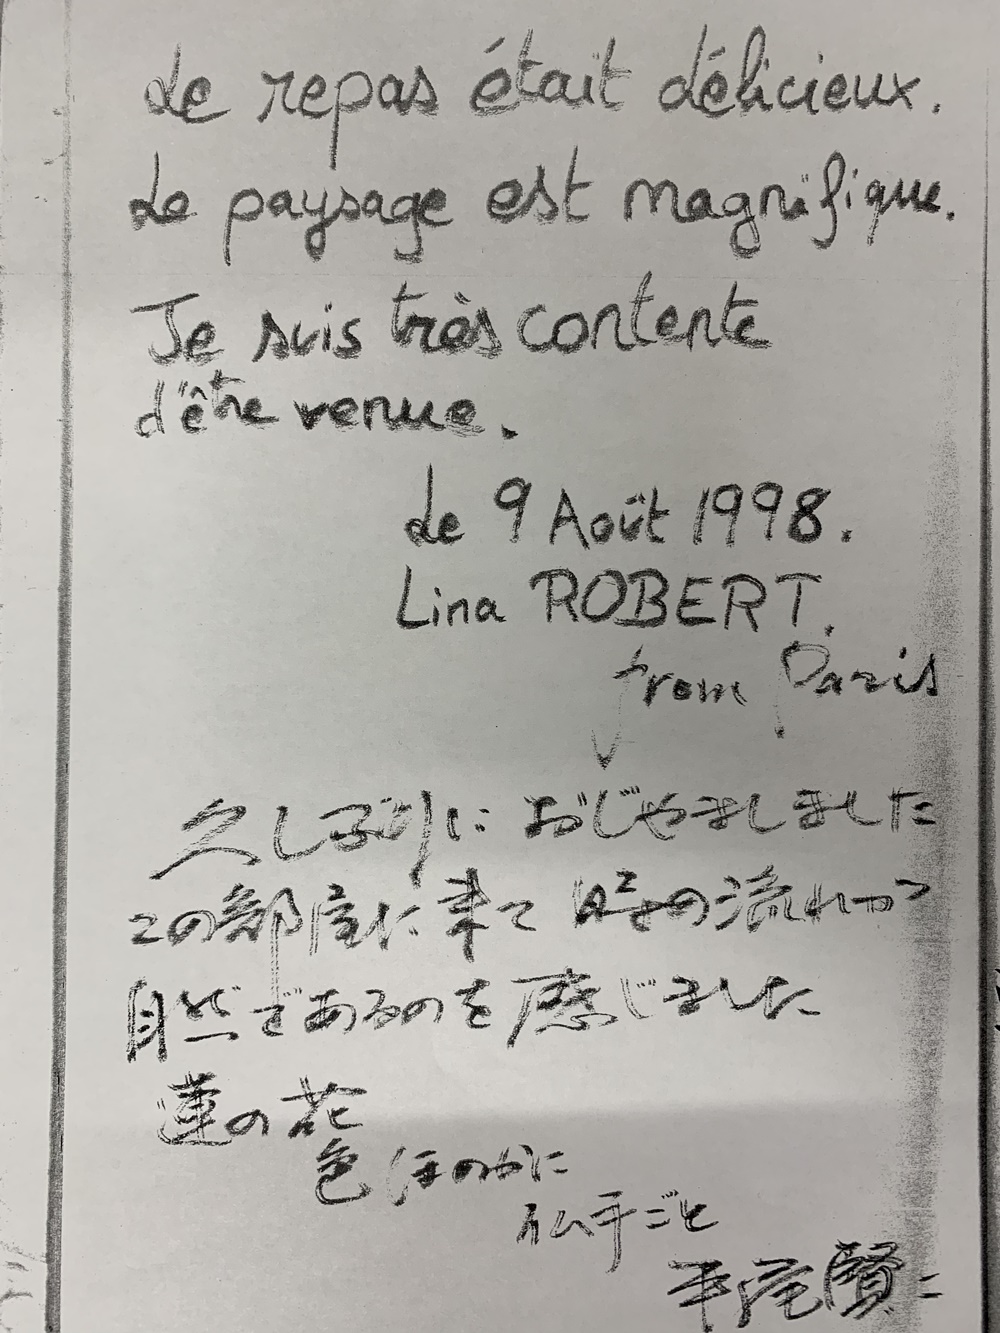 Le repas était délicieux.
Le paysage est magnifique.
Je suis très contente
d'être venue.
Le 9 Août 1998.
Lina ROBERT.
from Paris
久しぶりに おじゃましました
この部屋に来て 時の流れ
自然であるのを感じました
蓮の花
色ほのかに
仏手ごと
平尾賢二